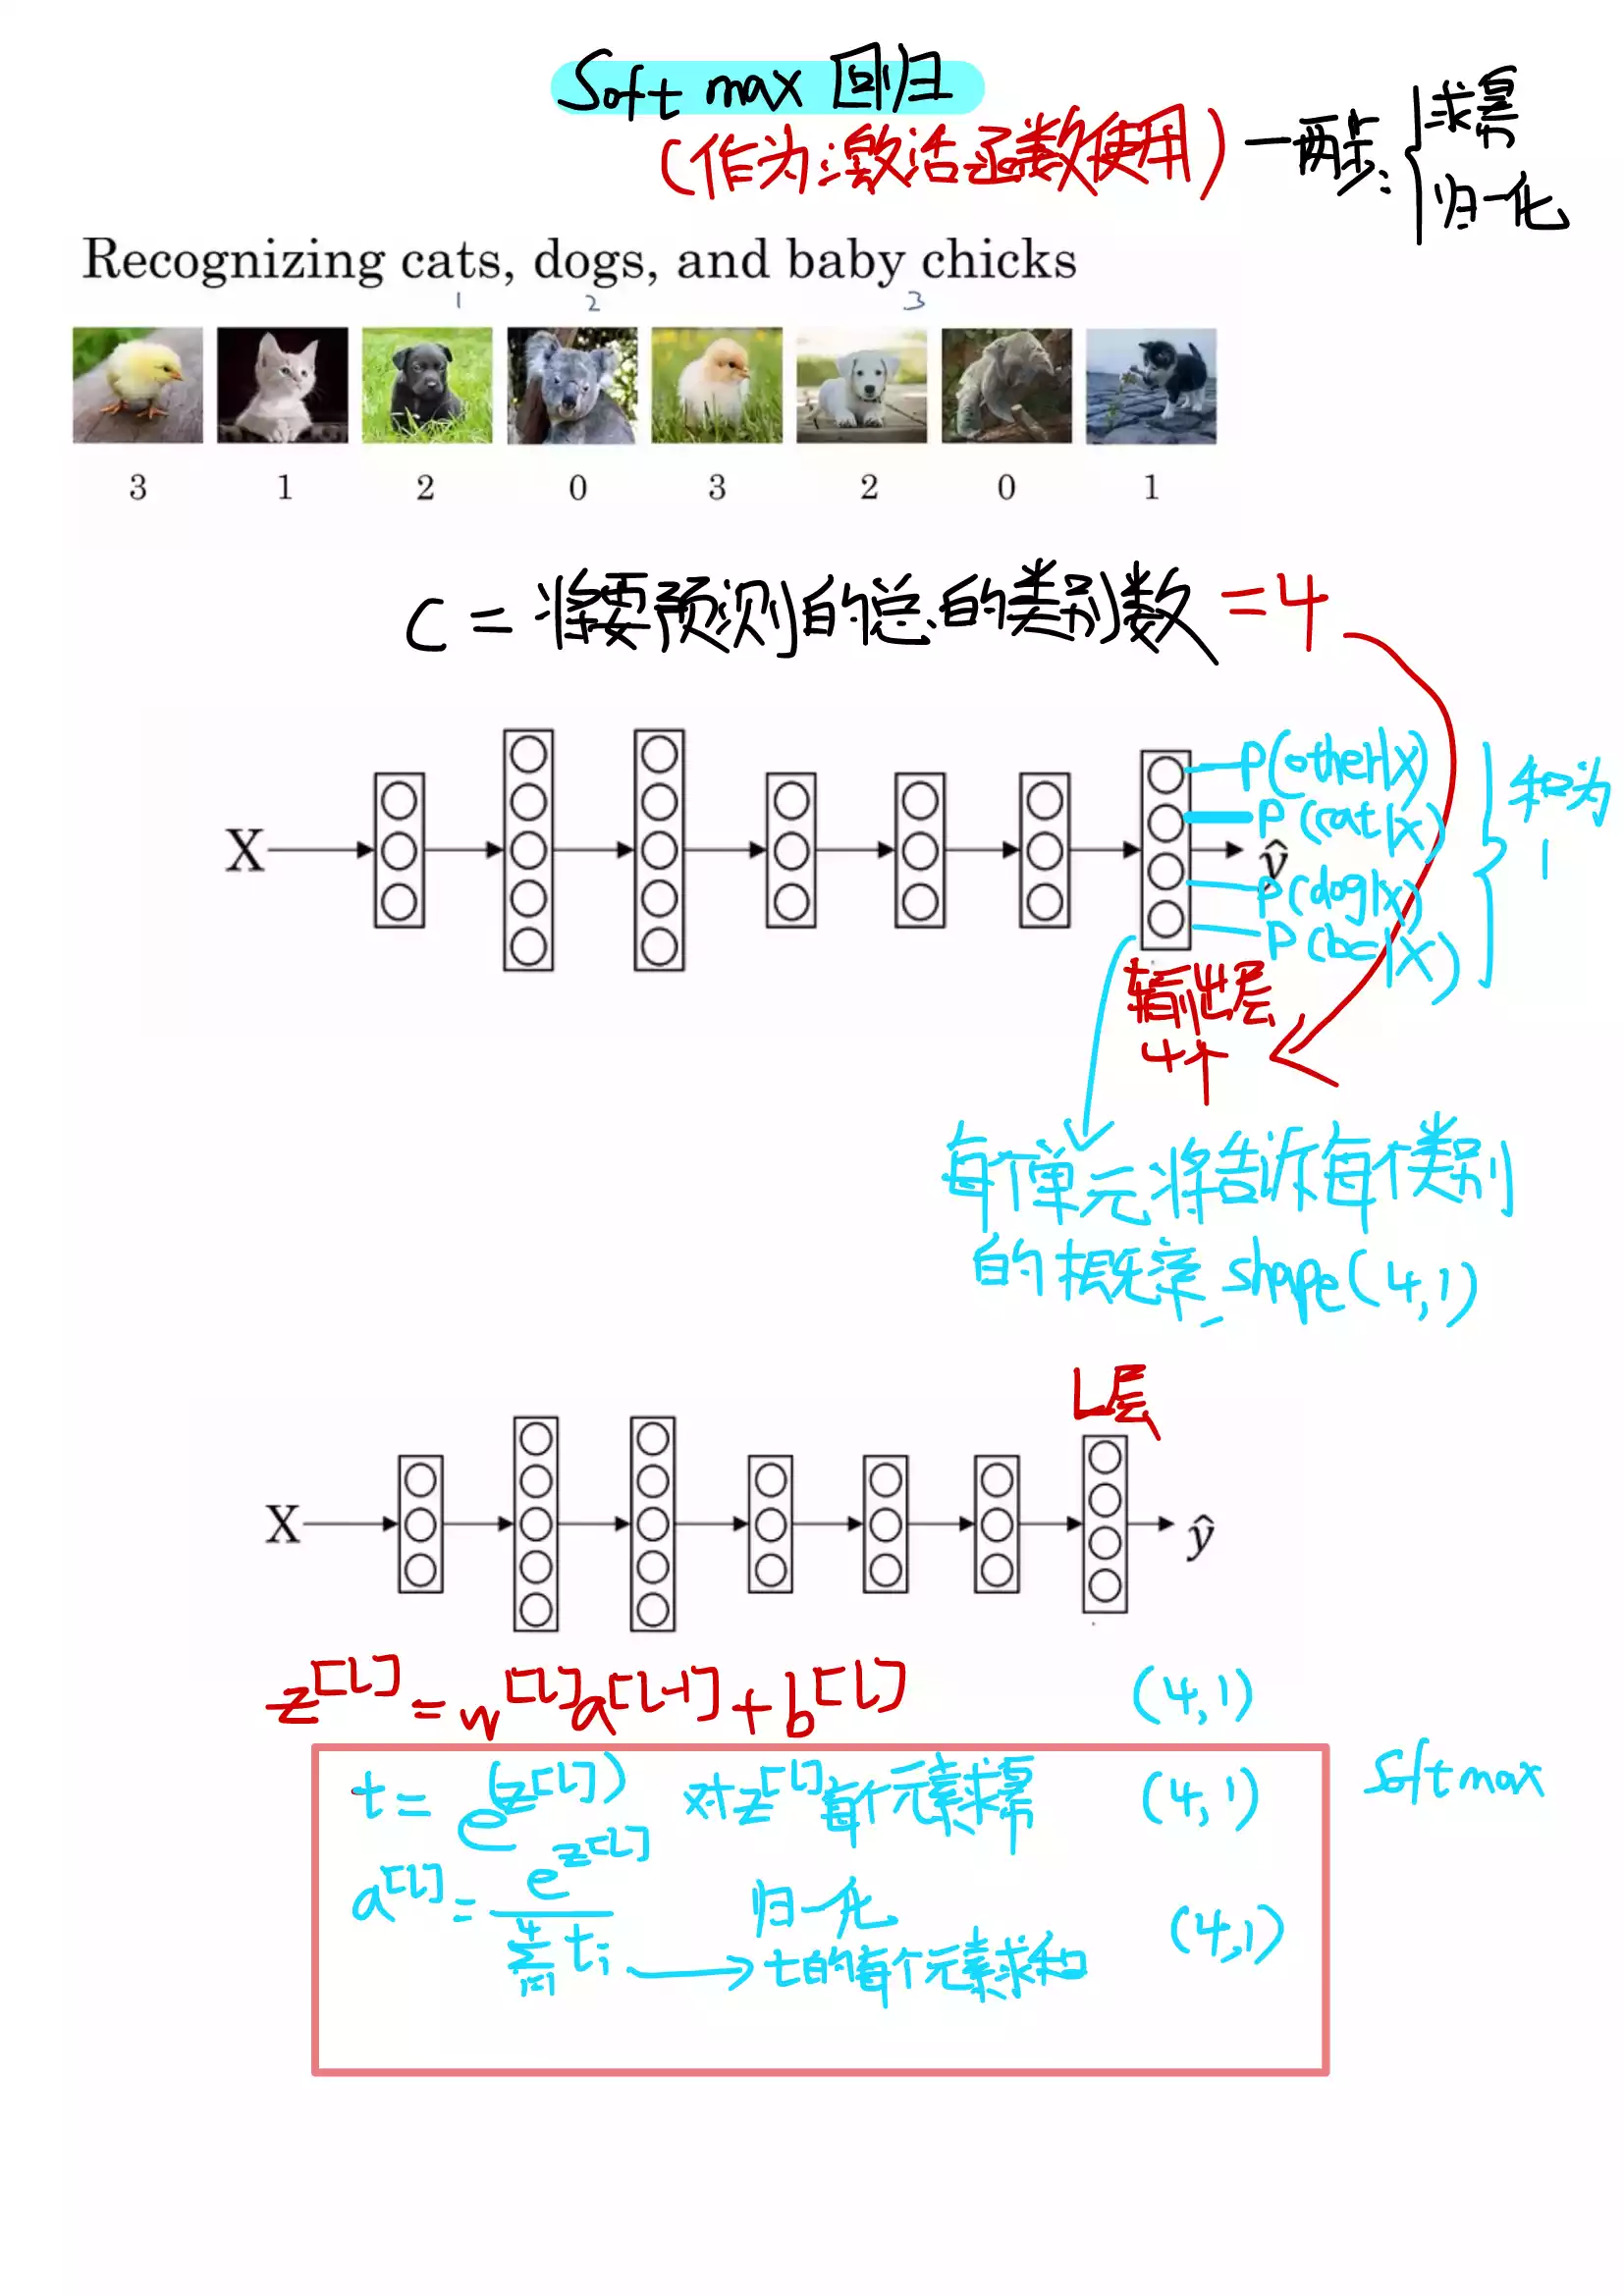 Softmax 回归
(作为激活函数使用) — 两步: { 求幂
归一化
Recognizing cats, dogs, and baby chicks
1 2 3
3 1 2 0 3 2 0 1
C = 将要预测的总的类别数 = 4
P(other|X)
P(cat|X)
X ŷ
P(dog|X)
P(bc|X)
和为
1
输出层
4个
每个单元将告诉每个类别
的概率 shape(4,1)
L层
X ŷ
z^[L] = w^[L] a^[L-1] + b^[L] (4,1)
t = e^(z^[L]) 对z^[L]每个元素求幂 (4,1) Softmax
a^[L] = e^z^[L] / ∑_{i=1}^4 t_i 归一化 (4,1)
→ t的每个元素求和